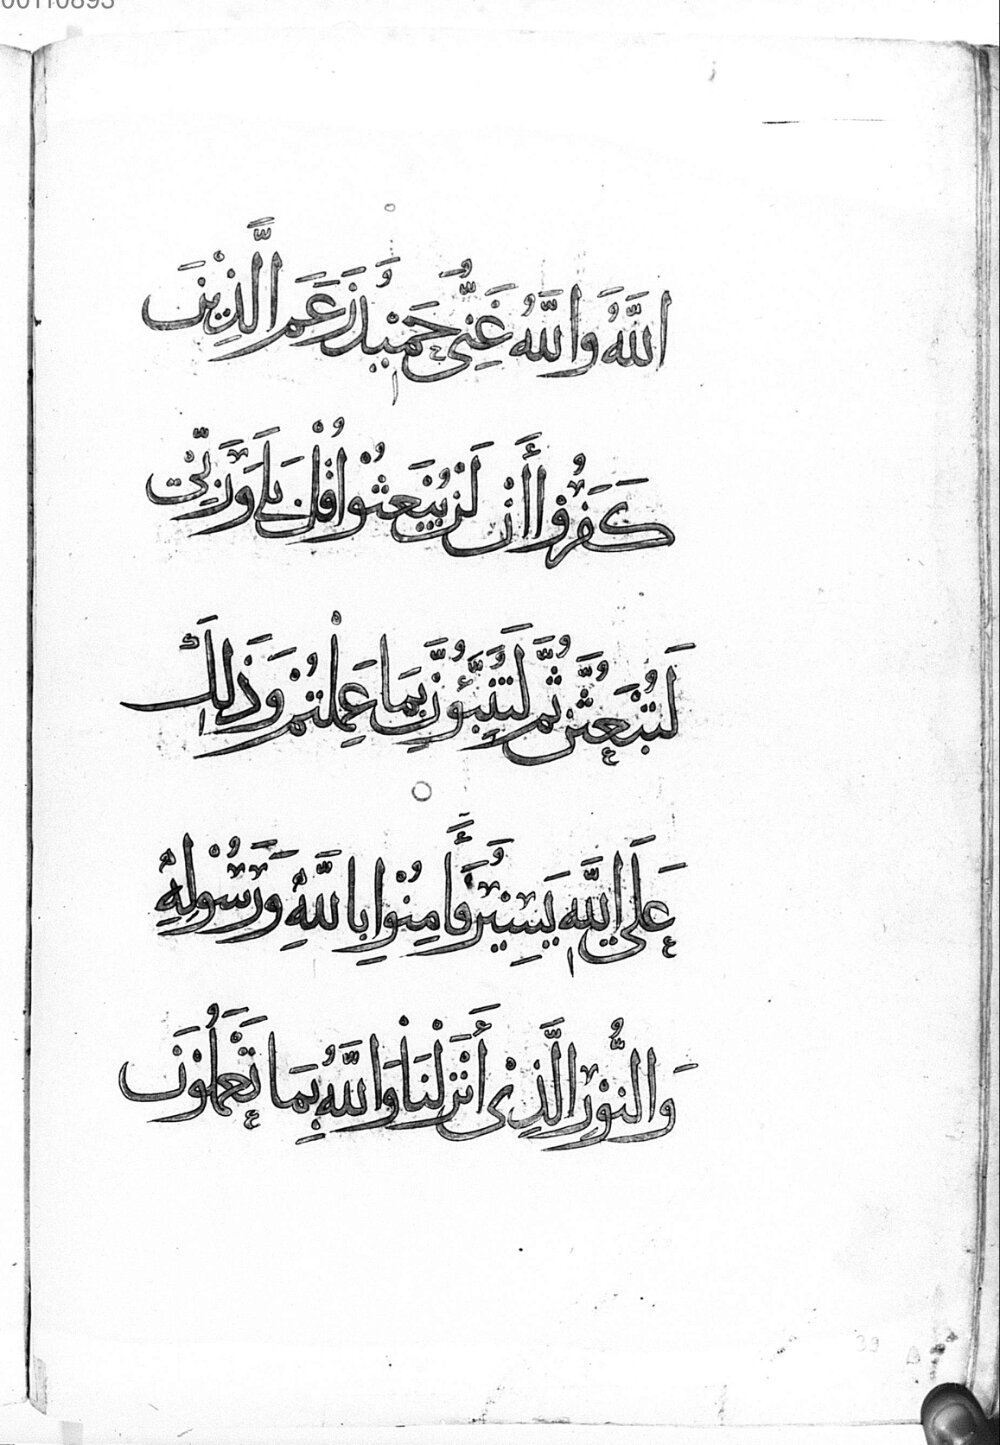 00110893
اللَّهُ وَاللَّهُ غَنِيٌّ حَمِيدٌ زَعَمَ الَّذِينَ
كَفَرُوا أَنْ لَنْ يُبْعَثُوا قُلْ بَلَى وَرَبِّي
لَتُبْعَثُنَّ ثُمَّ لَتُنَبَّؤُنَّ بِمَا عَمِلْتُمْ وَذَلِكَ
عَلَى اللَّهِ يَسِيرٌ فَآمِنُوا بِاللَّهِ وَرَسُولِهِ
وَالنُّورِ الَّذِي أَنْزَلْنَا وَاللَّهُ بِمَا تَعْمَلُونَ